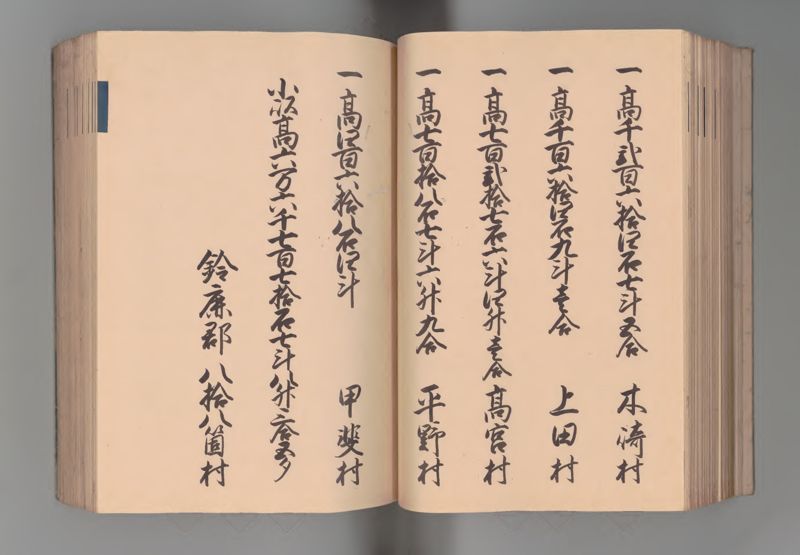 一 高千弐百六拾四石七斗五合 木崎村
一 高千百六拾四石九斗壱合 上田村
一 高七百弐拾七石六斗四升壱合 高宮村
一 高七百拾八石七斗六升九合 平野村
一 高四百六拾八石四斗 甲斐村
小以高六万六千七百七拾石七斗八升三合五夕
鈴鹿郡 八拾八箇村